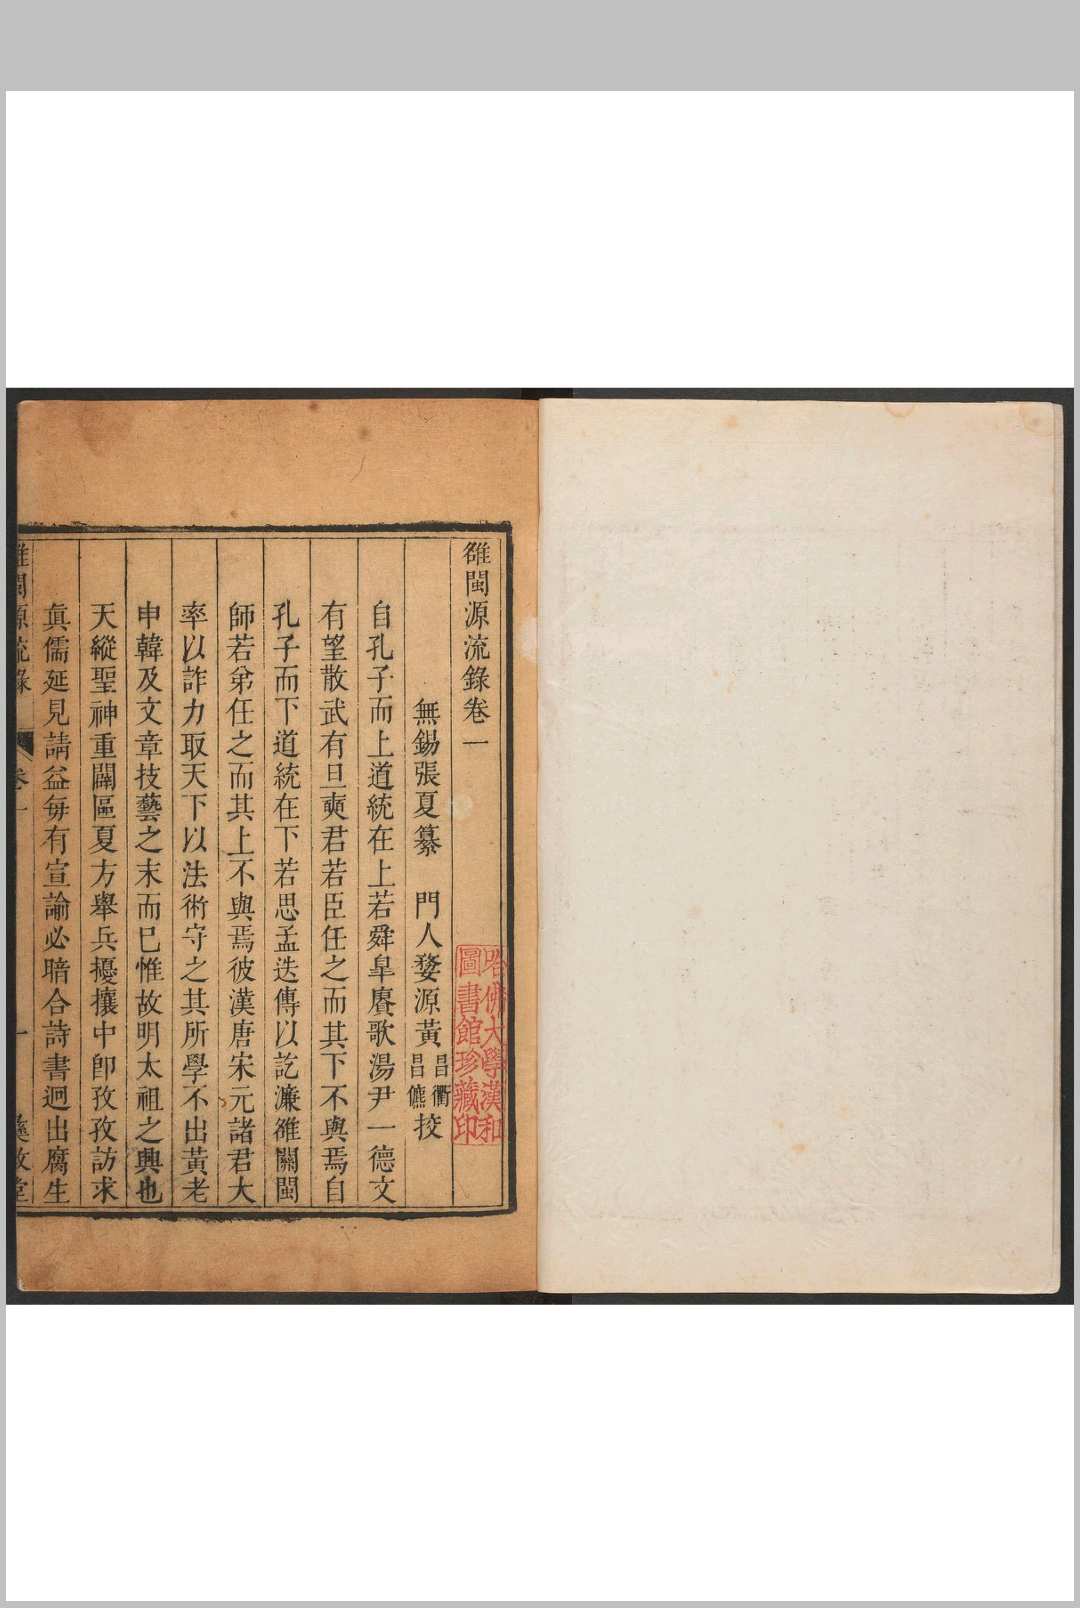 雒閩源流錄卷一
無錫張夏纂　門人婺源黃昌衢昌儦挍
自孔子而上道統在上若舜臯賡歌湯尹一德文
有望散武有旦奭君若臣任之而其下不與焉自
孔子而下道統在下若思孟迭傳以訖濂雒關閩
師若弟任之而其上不與焉彼漢唐宋元諸君大
率以詐力取天下以法術守之其所學不出黃老
申韓及文章技藝之末而已惟故明太祖之興也
天縱聖神重闢區夏方舉兵擾攘中卽孜孜訪求
眞儒延見請益每有宣諭必暗合詩書迥出腐生
雒閩源流錄　卷一　一　堂
哈佛大學漢和
圖書館珍藏印